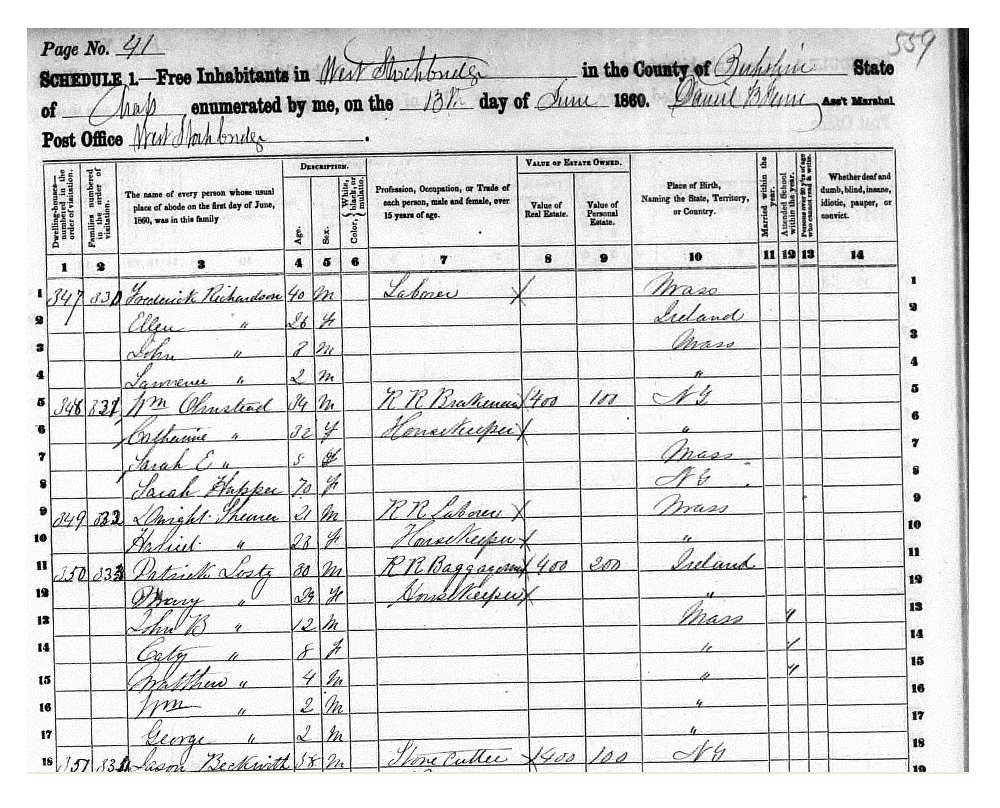 559
Page No. 41
SCHEDULE 1.—Free Inhabitants in West Stockbridge in the County of Berkshire State
of Mass enumerated by me, on the 13th day of June 1860. Daniel B Fenn Ass't Marshal
Post Office West Stockbridge.
Dwelling-houses—numbered in the order of visitation. Families numbered in the order of visitation. The name of every person whose usual place of abode on the first day of June, 1860, was in this family DESCRIPTION. Age. Sex. Color, { White, black, or mulatto. Profession, Occupation, or Trade of each person, male and female, over 15 years of age. VALUE OF ESTATE OWNED. Value of Real Estate. Value of Personal Estate. Place of Birth, Naming the State, Territory, or Country. Married within the year. Attended School within the year. Persons over 20 y'rs of age who cannot read & write. Whether deaf and dumb, blind, insane, idiotic, pauper, or convict.
1 2 3 4 5 6 7 8 9 10 11 12 13 14
1 347 Frederick Richardson 40 M Laborer Mass 1
2 Ellen " 26 F Ireland 2
3 John " 8 M Mass 3
4 Lawrence " 2 M " 4
5 348 831 Wm Olmstead 34 M R R Brakeman 400 100 NY 5
6 Catherine " 32 F Housekeeper " 6
7 Sarah E " 5 F Mass 7
8 Sarah Happer 70 F NY 8
9 349 Dwight 21 M R R Laborer Mass 9
10 " 23 F Housekeeper " 10
11 350 833 Patrick Losty 30 M R R Baggageman 400 200 Ireland 11
12 Mary " 29 F Housekeeper " 12
13 John B " 12 M Mass " 13
14 Caty " 8 F " " 14
15 Matthew " 4 M " " 15
16 Wm " 2 M " 16
17 George " 2 M " 17
18 351 Jason Beckwith 38 M Stone Cutter 400 100 NY 18
19